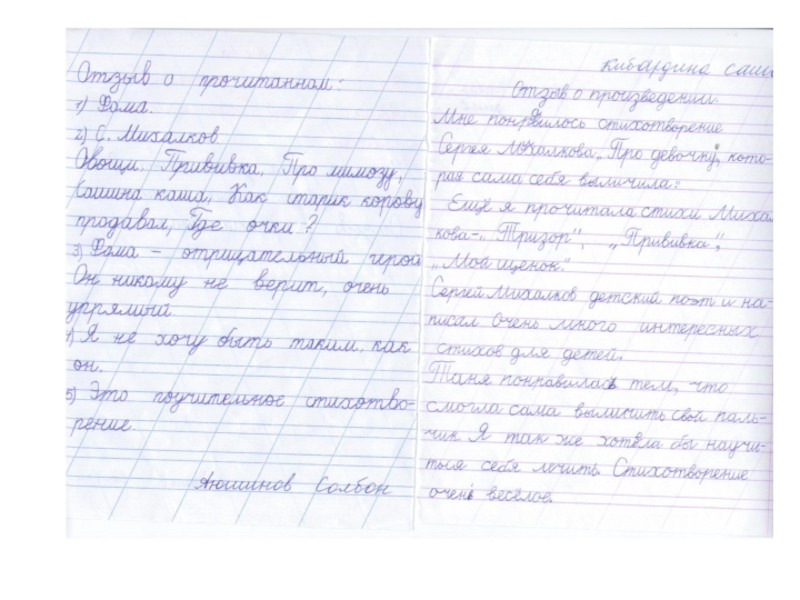 Отзыв о прочитанном:
1) Фома.
2) С. Михалков
Овощи, Прививка, Про мимозу,
Сашина каша, Как старик корову
продавал, Где очки?
3) Фома – отрицательный герой
Он никому не верит, очень
упрямый.
4) Я не хочу быть таким, как
он.
5) Это поучительное стихотво-
рение.
Аюшинов Солбон
Кибардина Саша
Отзыв о произведении.
Мне понравилось стихотворение
Сергея Михалкова „Про девочку, кото-
рая сама себя вылечила".
Ещё я прочитала стихи Миха
кова – „Тризор", „Прививка",
„Мой щенок."
Сергей Михалков детский поэт и на-
писал очень много интересных
стихов для детей.
Таня понравилась тем, что
смогла сама выличить свой паль-
чик Я так же хотела бы научи-
ться себя лечить. Стихотворение
очень весёлое.